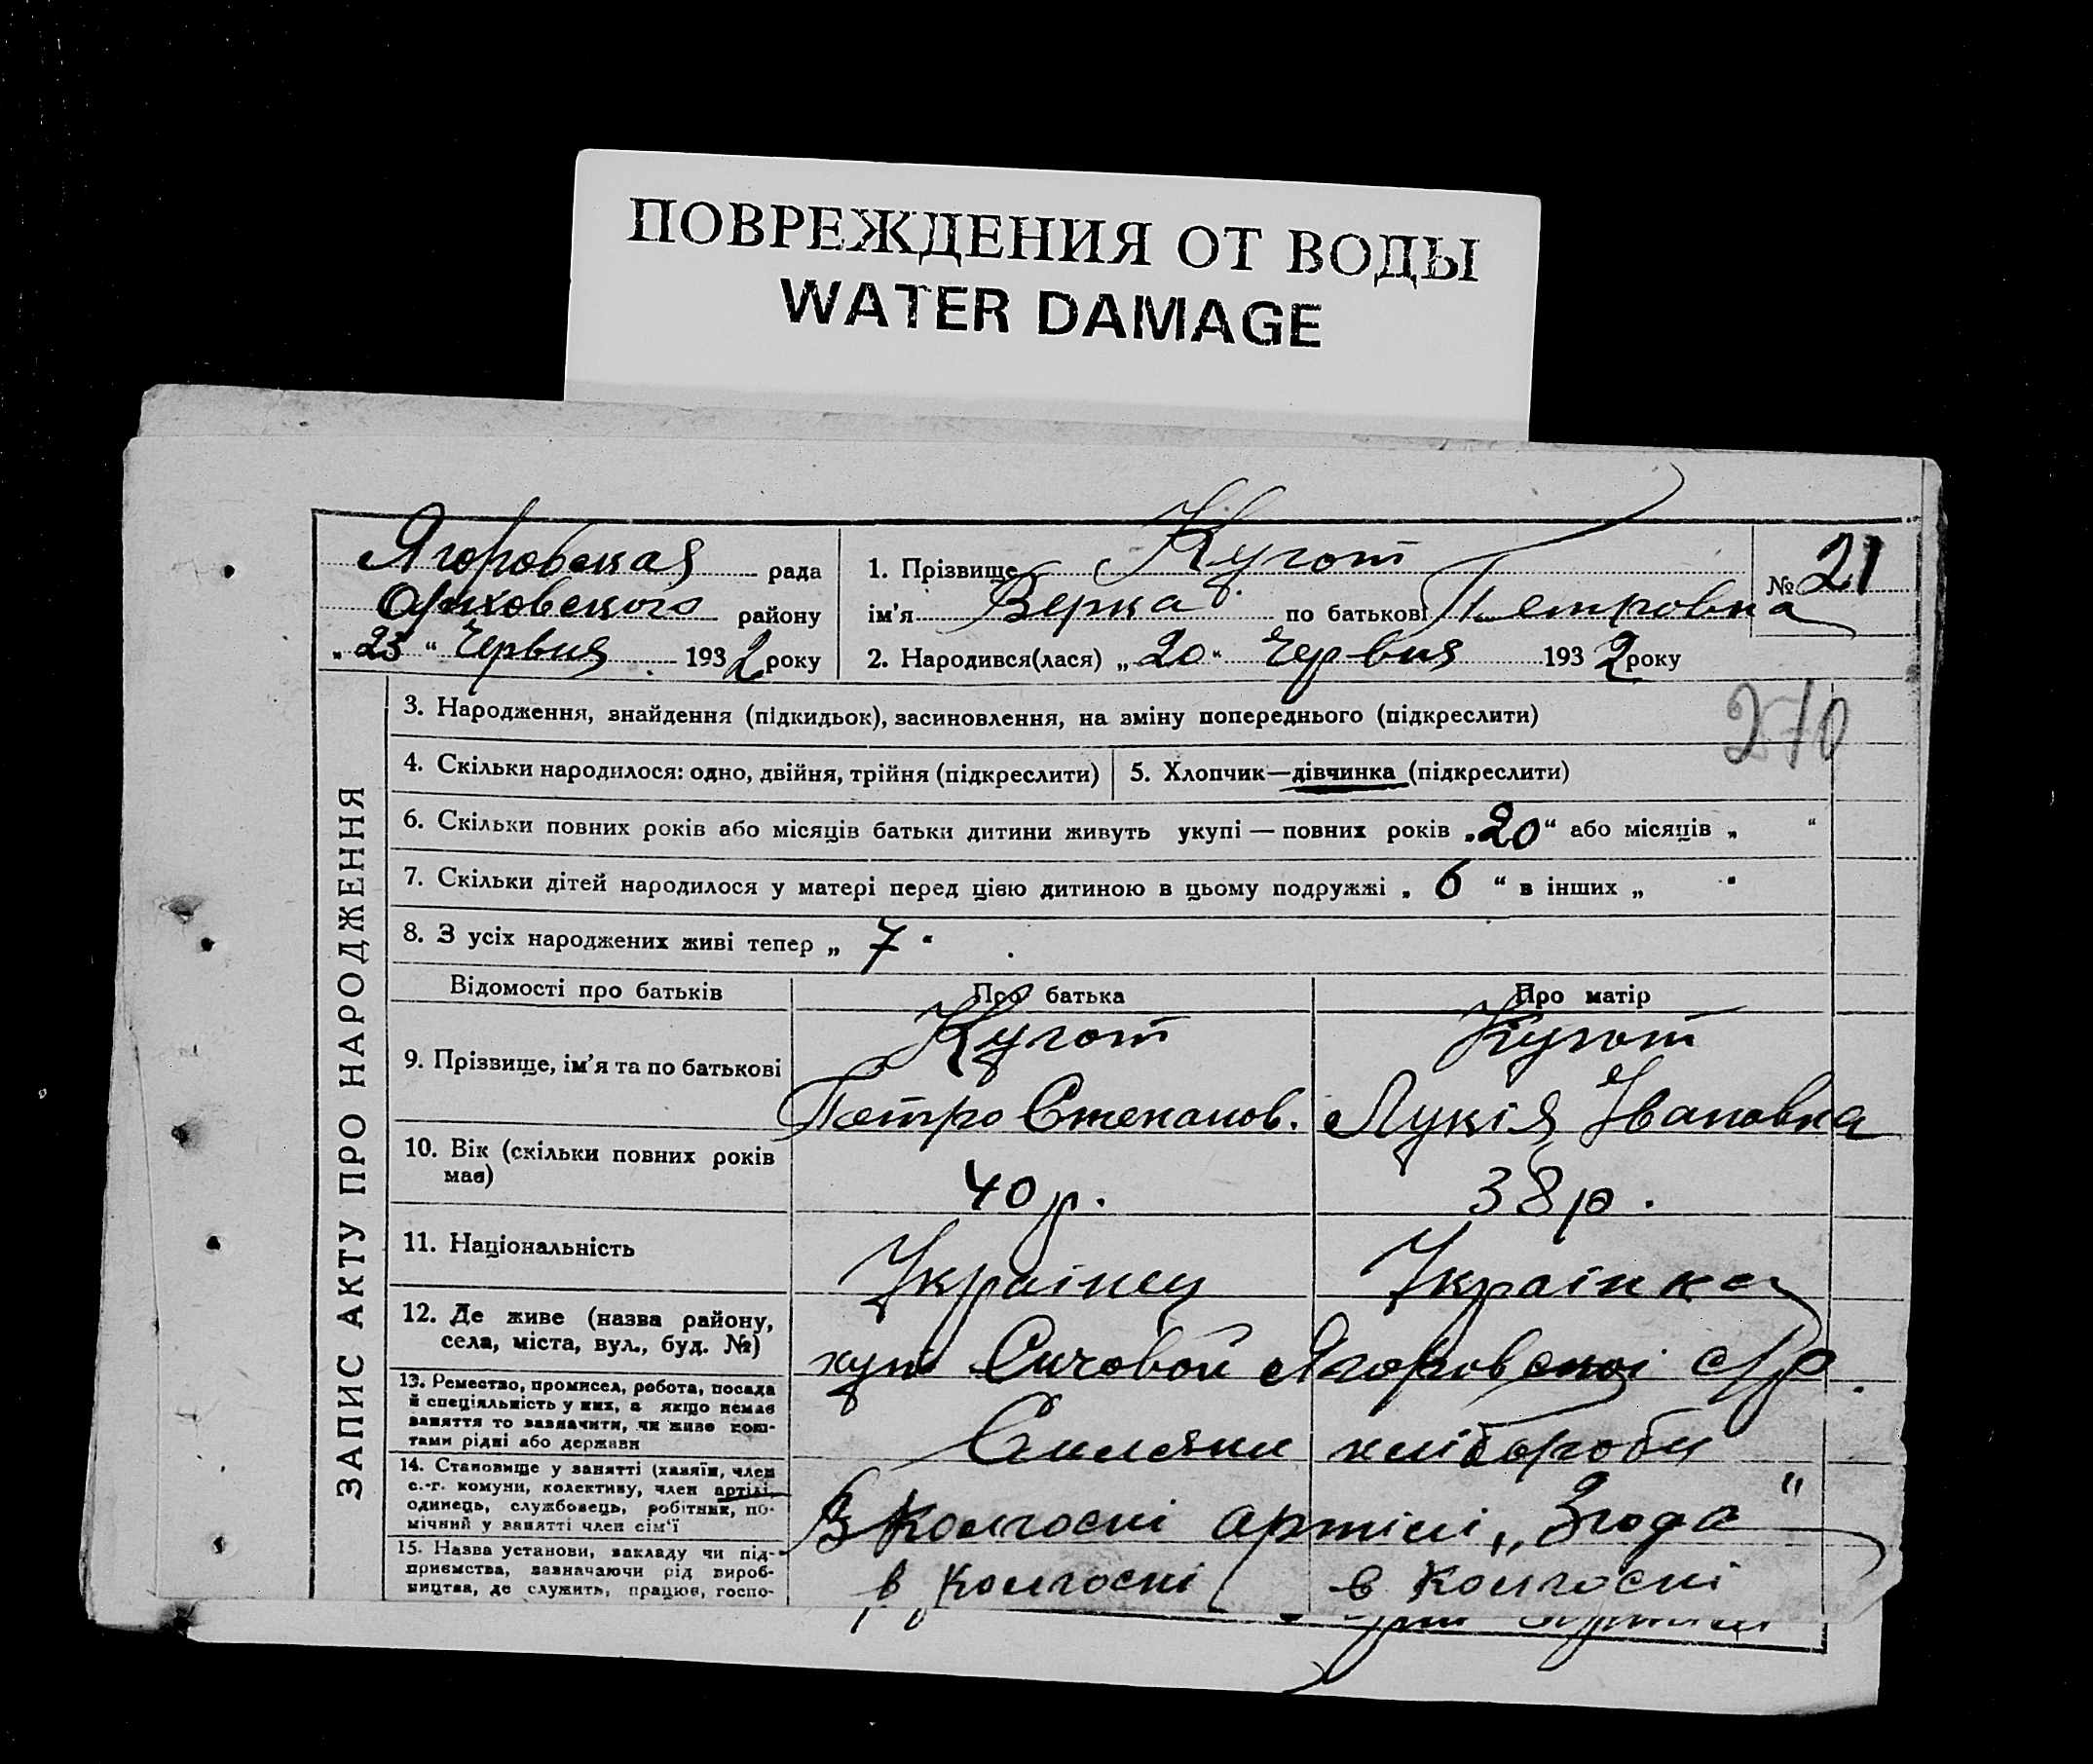 ПОВРЕЖДЕНИЯ ОТ ВОДЫ
WATER DAMAGE
Ягоровская рада
Оріховського району
„ 23 “ Червня 1932 року
1. Прізвище Кугот
№ 21
ім’я Верка по батькові Петровна
2. Народився(лася) „ 20 “ Червня 1932 року
270
ЗАПИС АКТУ ПРО НАРОДЖЕННЯ
3. Народження, знайдення (підкидьок), засиновлення, на зміну попереднього (підкреслити)
4. Скільки народилося: одно, двійня, трійня (підкреслити)
5. Хлопчик—дівчинка (підкреслити)
6. Скільки повних років або місяців батьки дитини живуть укупі — повних років „ 20 “ або місяців „ “
7. Скільки дітей народилося у матері перед цією дитиною в цьому подружжі „ 6 “ в інших „ “
8. З усіх народжених живі тепер „ 7 “
Відомості про батьків
Про батька
Про матір
9. Прізвище, ім’я та по батькові
Кугот
Петро Степанов.
Кугот
Лукія Івановна
10. Вік (скільки повних років
має)
40 р.
38 р.
11. Національність
Украінец
Украінка
12. Де живе (назва району,
села, міста, вул., буд. №)
хут Сичовой Ягоровскоі с/р.
13. Ремество, промисел, робота, посада
й спеціяльність у них, а якщо немає
заняття то зазначити, чи живе кош-
тами рідні або держави
Силяни хлібороби
14. Становище у занятті (хазяїн, член
с.-г. комуни, колективу, член артілі,
одинець, службовець, робітник, по-
мічний у занятті член сім’ї
В колгоспі артілі „Згода“
15. Назва установи, закладу чи під-
приємства, зазначаючи рід вироб-
ництва, де служить, працює, госпо-
в колгоспі
в колгоспі